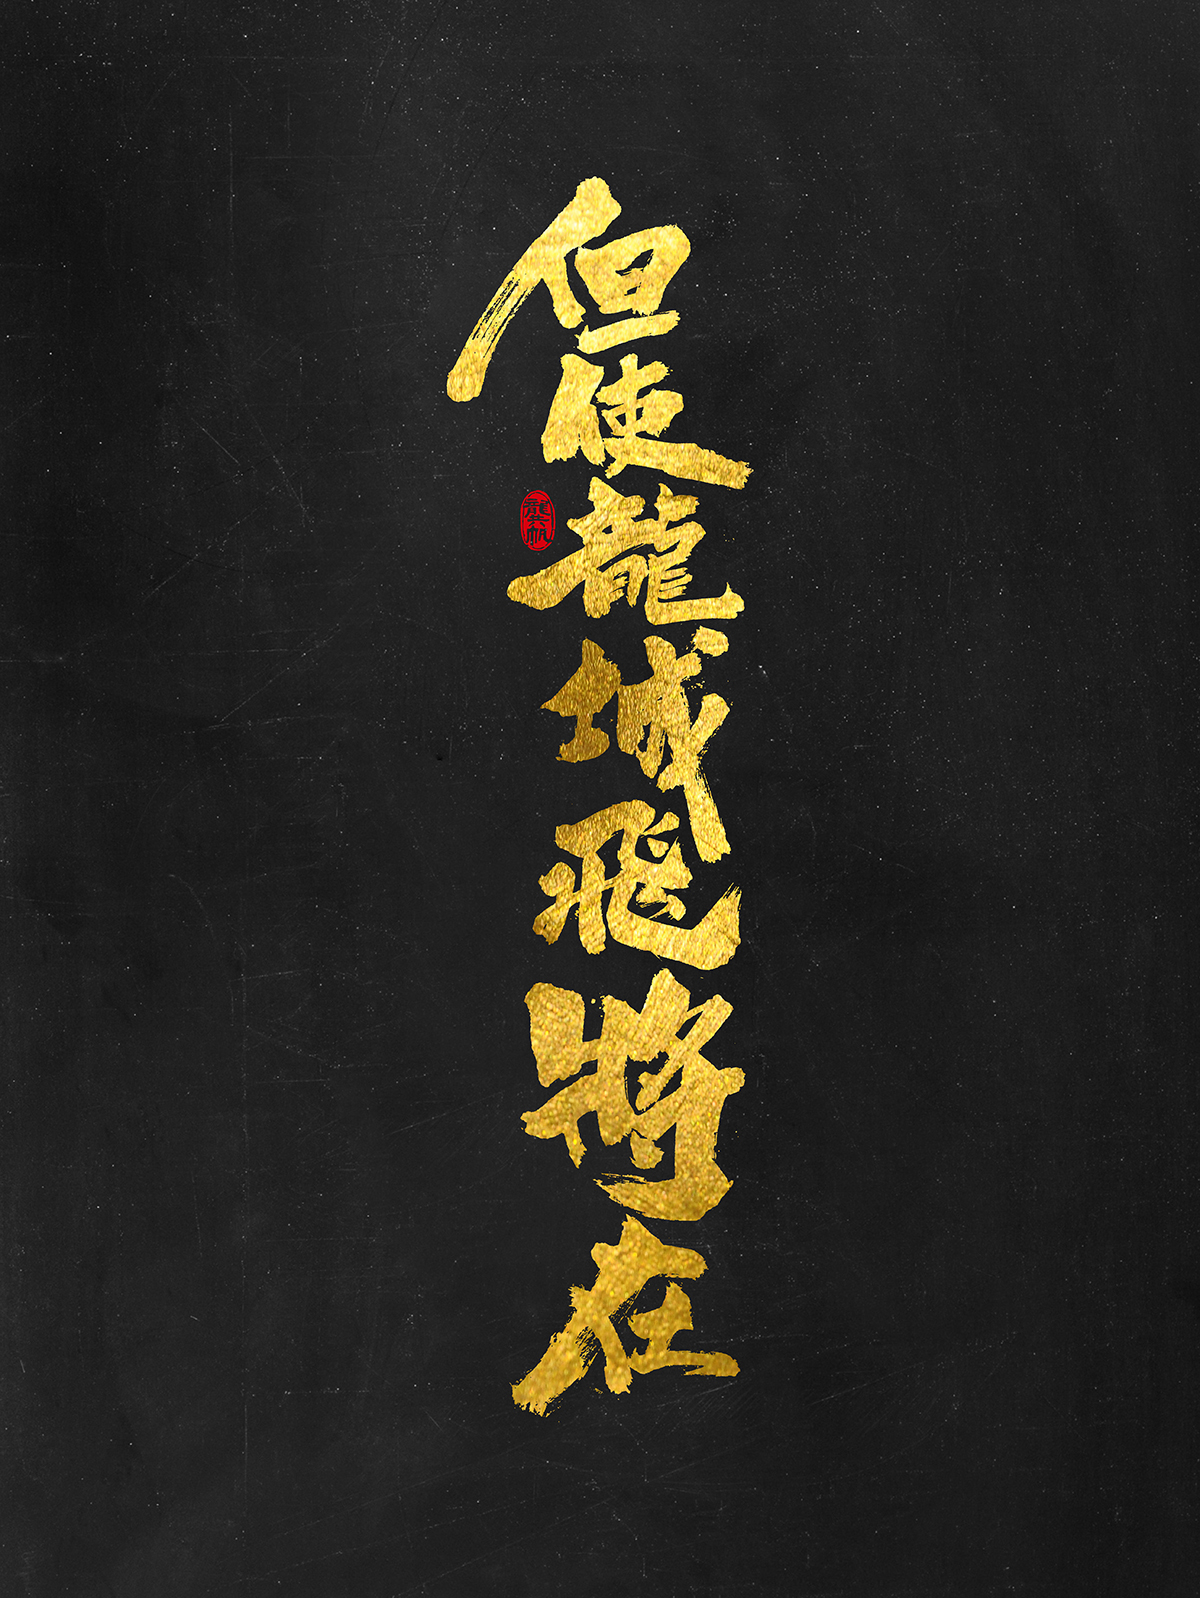 但使龍城飛將在